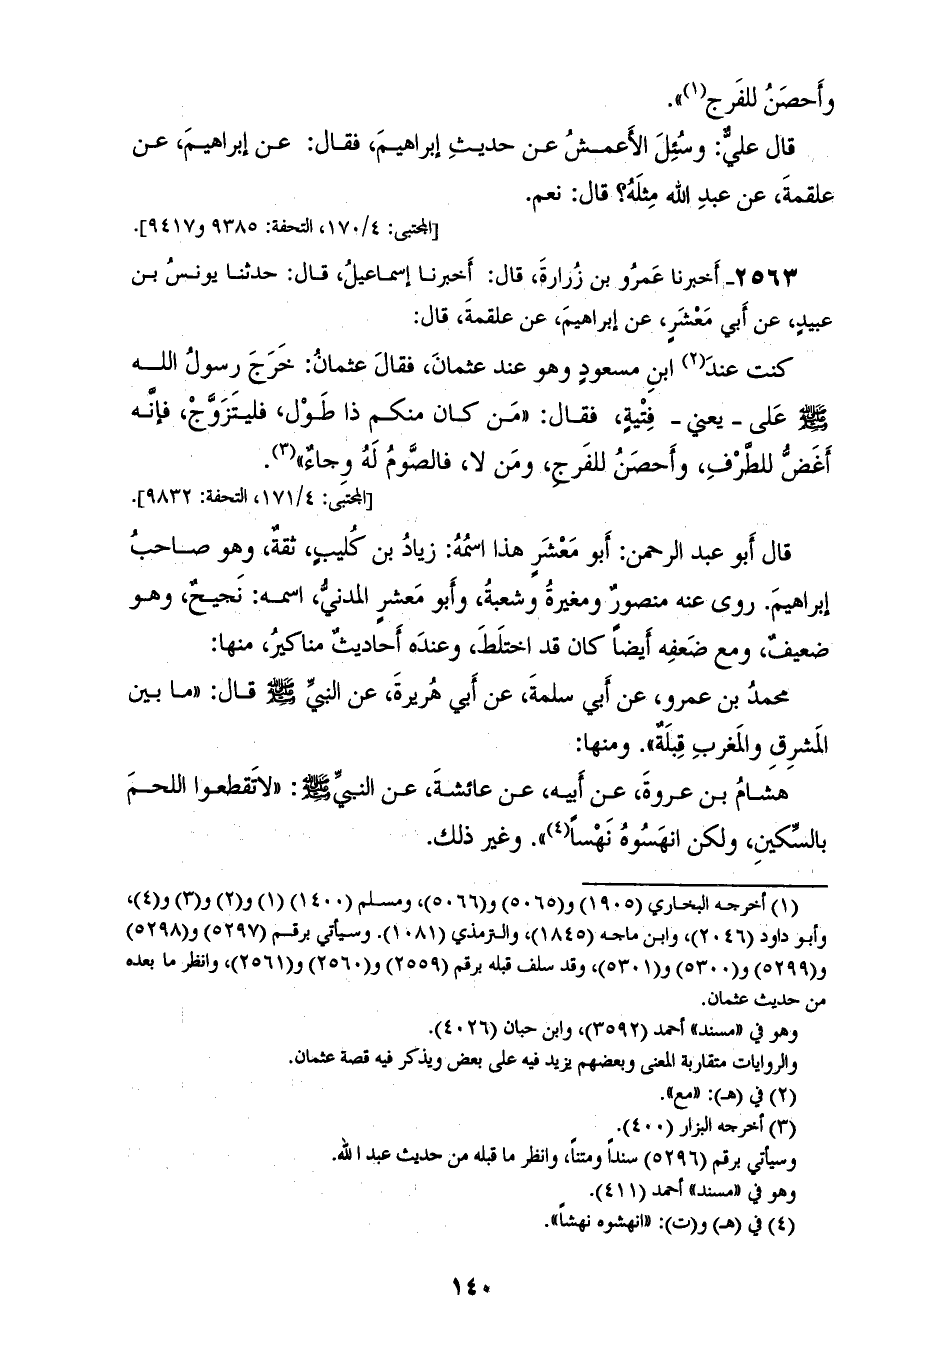 وأَحصَنُ للفَرجِ(١)».
قال عليٌّ: وسُئِلَ الأَعمشُ عن حديثِ إبراهيمَ، فقال: عن إبراهيمَ، عن
علقمةَ، عن عبدِ الله مِثلَهُ؟ قال: نعم.
[المجتبى: ١٧٠/٤، التحفة: ٩٣٨٥ و٩٤١٧].
٢٥٦٣ـ أخبرنا عَمرُو بن زُرارةَ، قال: أَخبرنا إسماعيلُ، قال: حدثنا يونسُ بن
عبيدٍ، عن أَبي مَعْشَرٍ، عن إبراهيمَ، عن علقمةَ، قال:
كنت عندَ(٢) ابنِ مسعودٍ وهو عند عثمانَ، فقالَ عثمانُ: خَرَجَ رسولُ الله
ﷺ عَلى ـ يعني ـ فِتْيةٍ، فقال: «مَن كان منكم ذا طَوْل، فليتَزوَّجْ، فإنَّه
أَغَضُّ للطَّرْفِ، وأَحصَنُ للفَرجِ، ومَن لا، فالصَّومُ لَهُ وِجاءٌ»(٣).
[المجتبى: ١٧١/٤، التحفة: ٩٨٣٢].
قال أَبو عبد الرحمن: أَبو مَعْشَرٍ هذا اسمُهُ: زيادُ بن كُليبٍ، ثقةٌ، وهو صاحبُ
إبراهيمَ. روى عنه منصورٌ ومغيرةُ وشعبةُ، وأَبو مَعشرٍ المدنيُّ، اسمه: نَجيحٌ، وهو
ضعيفٌ، ومع ضَعفِه أَيضاً كان قد اختلَطَ، وعندَه أَحاديثُ مناكيرُ، منها:
محمدُ بن عمرو، عن أَبي سلمةَ، عن أَبي هُريرةَ، عن النبيِّ ﷺ قال: «ما بين
المَشرِقِ والمَغربِ قِبلَةٌ». ومنها:
هشامُ بن عروةَ، عن أَبيه، عن عائشةَ، عن النبيِّ ﷺ: «لاتَقطعوا اللحمَ
بالسِّكينِ، ولكن انهَسُوهُ نَهْساً(٤)». وغير ذلك.
(١) أخرجه البخاري (١٩٠٥) و(٥٠٦٥) و(٥٠٦٦)، ومسلم (١٤٠٠) (١) و(٢) و(٣) و(٤)،
وأبو داود (٢٠٤٦)، وابن ماجه (١٨٤٥)، والترمذي (١٠٨١). وسيأتي برقم (٥٢٩٧) و(٥٢٩٨)
و(٥٢٩٩) و(٥٣٠٠) و(٥٣٠١)، وقد سلف قبله برقم (٢٥٥٩) و(٢٥٦٠) و(٢٥٦١)، وانظر ما بعده
من حديث عثمان.
وهو في «مسند» أحمد (٣٥٩٢)، وابن حبان (٤٠٢٦).
والروايات متقاربة المعنى وبعضهم يزيد فيه على بعض ويذكر فيه قصة عثمان.
(٢) في (هـ): «مع».
(٣) أخرجه البزار (٤٠٠).
وسيأتي برقم (٥٢٩٦) سنداً ومتناً، وانظر ما قبله من حديث عبد الله.
وهو في «مسند» أحمد (٤١١).
(٤) في (هـ) و(ت): «انهشوه نهشاً».
١٤٠